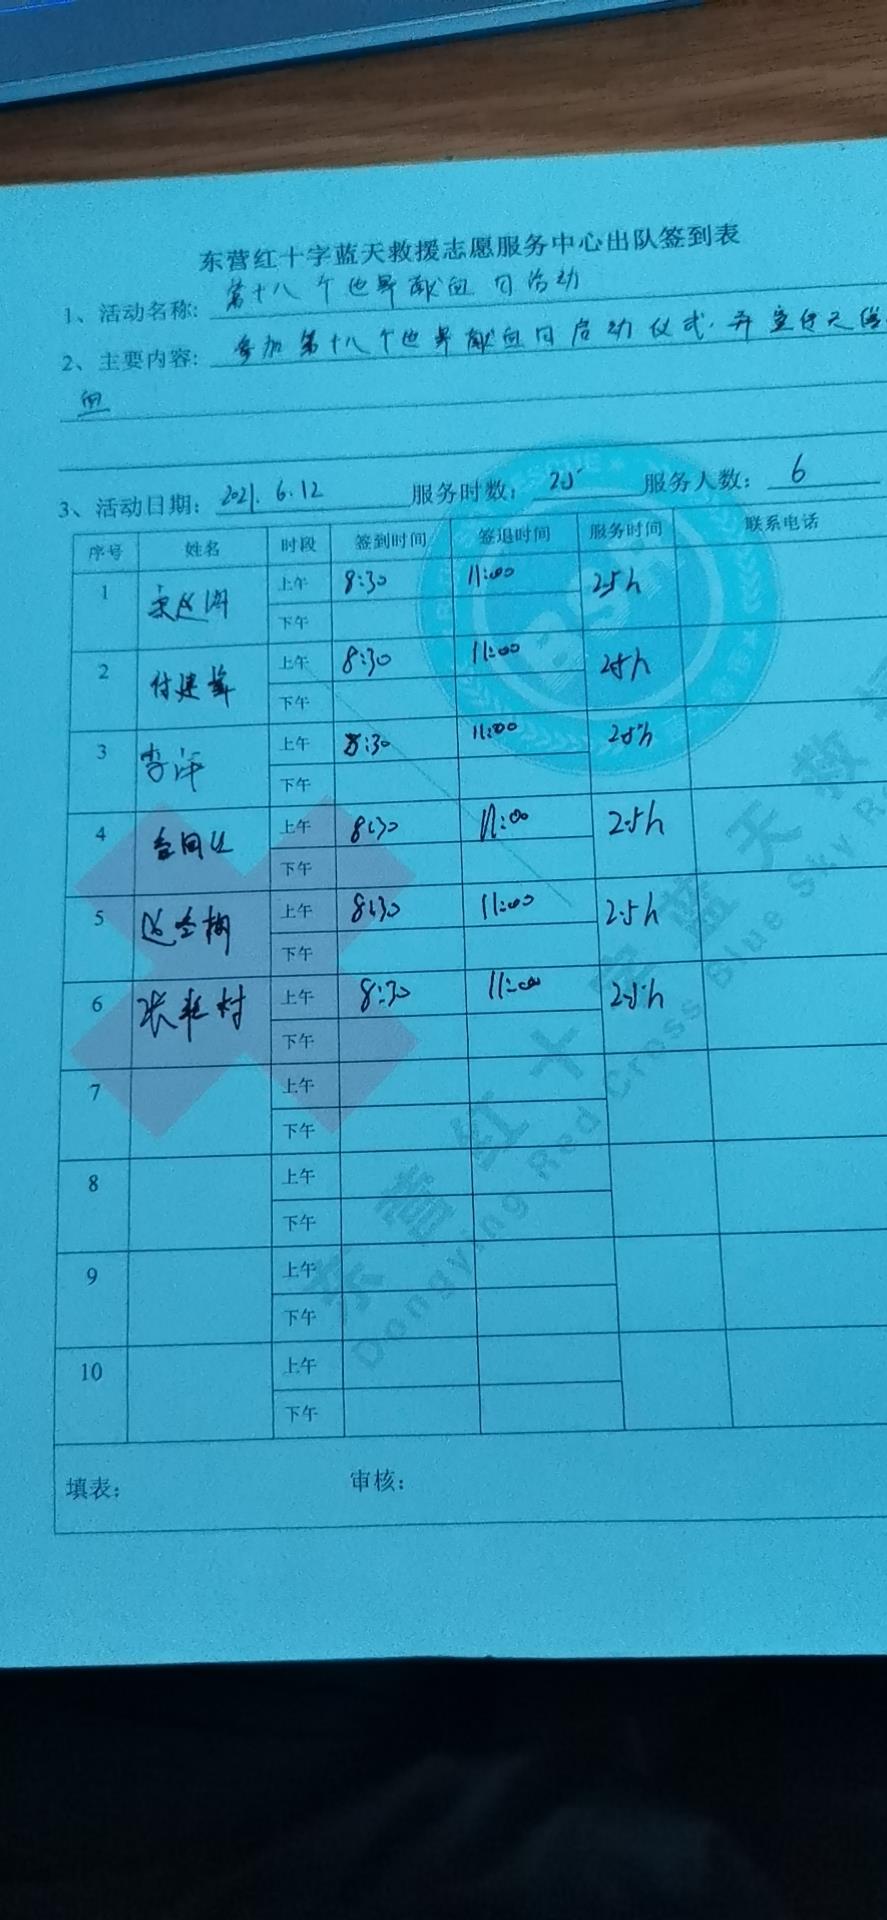 东营红十字蓝天救援志愿服务中心出队签到表
1、活动名称: 第十八个世界献血日活动
2、主要内容: 参加第十八个世界献血日启动仪式.并宣传无偿
血
3、活动日期: 2021.6.12 服务时数: 2.5 服务人数: 6
序号 姓名 时段 签到时间 签退时间 服务时间 联系电话
1 上午 8:30 11:00 2.5h
下午
2 付建峰 上午 8:30 11:00 2.5h
下午
3 李萍 上午 8:30 11:00 2.5h
下午
4 上午 8:30 11:00 2.5h
下午
5 上午 8:30 11:00 2.5h
下午
6 上午 8:30 11:00 2.5h
下午
7 上午
下午
8 上午
下午
9 上午
下午
10 上午
下午
填表: 审核:
BSR
东营红十字蓝天救援
Dongying Red Cross Blue Sky Re